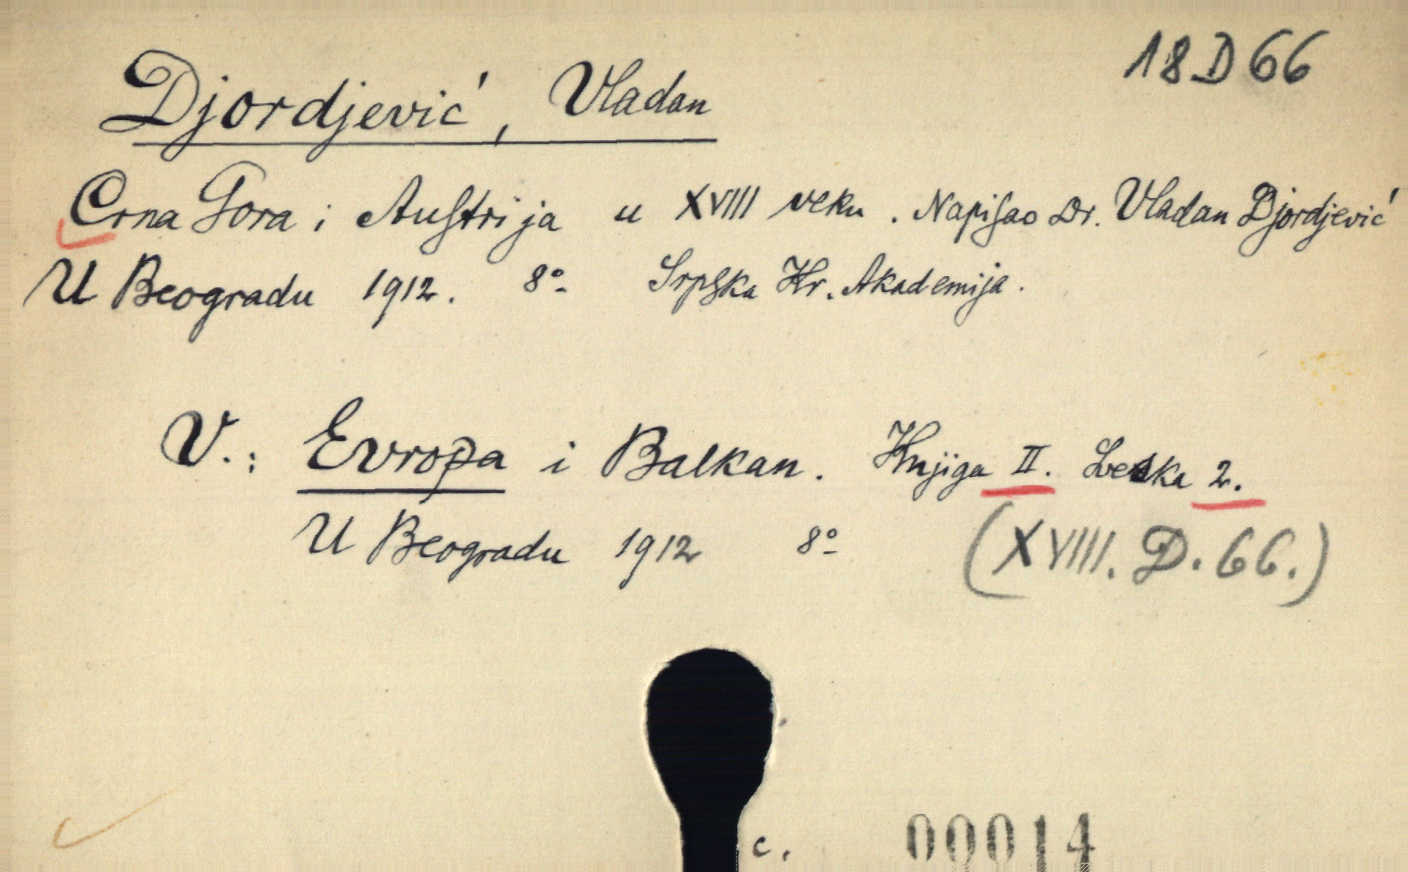 18 D 66
Djordjević, Vladan
Crna Gora i Austrija u XVIII veku. Napisao Dr. Vladan Djordjević
U Beogradu 1912. 8°- Srpska Kr. Akademija.
V.: Evropa i Balkan. Knjiga II. Sveska 2.
U Beogradu 1912 8°
(XVIII. D. 66.)
c. 00014